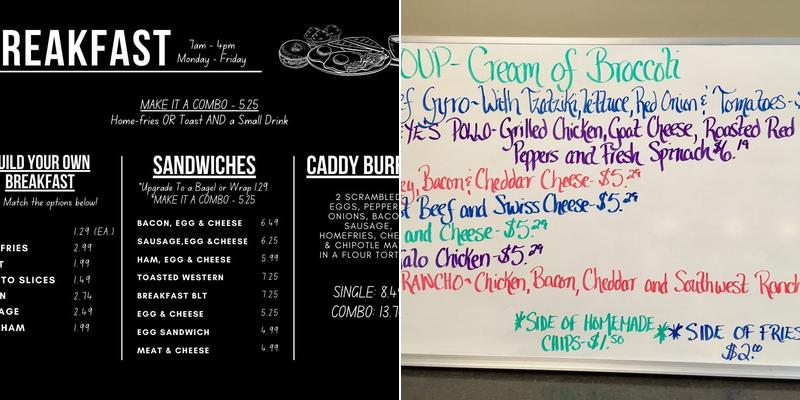 REAKFAST
7am - 4pm
Monday - Friday
MAKE IT A COMBO - 5.25
Home-fries OR Toast AND a Small Drink
UILD YOUR OWN
BREAKFAST
Match the options below!
1.29 (EA.)
FRIES 2.99
T 1.99
TO SLICES 1.49
N 2.74
AGE 2.49
HAM 1.99
SANDWICHES
*Upgrade To a Bagel or Wrap 1.29
*MAKE IT A COMBO - 5.25
BACON, EGG & CHEESE 6.49
SAUSAGE,EGG &CHEESE 6.25
HAM, EGG & CHEESE 5.99
TOASTED WESTERN 7.25
BREAKFAST BLT 7.25
EGG & CHEESE 5.25
EGG SANDWICH 4.99
MEAT & CHEESE 4.99
CADDY BURR
2 SCRAMBLED
EGGS, PEPPER
ONIONS, BACO
SAUSAGE,
HOMEFRIES, CHE
& CHIPOTLE MA
IN A FLOUR TORT
SINGLE: 8.4
COMBO: 13.7
OUP- Cream of Broccoli
ef Gyro-With Tzatziki, lettuce, Red Onion & Tomatoes-$
EYE'S POLLO-Grilled Chicken, Goat Cheese, Roasted Red
Peppers and Fresh Spinach $6.19
ey, Bacon & Cheddar Cheese-$5.29
st Beef and Swiss Cheese-$5.29
and Cheese-$5.29
falo Chicken-$5.29
RANCHO-Chicken, Bacon, Cheddar and Southwest Ranch
*SIDE OF HOMEMADE
CHIPS-$1.50
**SIDE OF FRIES
$2.00